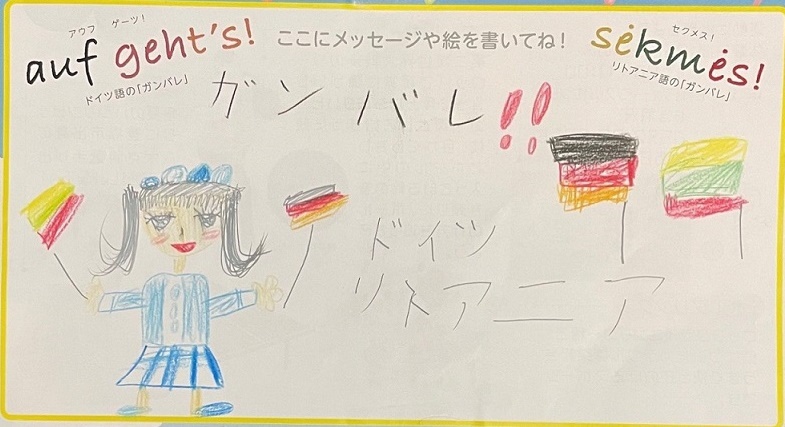 アウフ ゲーツ!
auf geht's!
ドイツ語の「ガンバレ」
ここにメッセージや絵を書いてね!
セクメス!
sėkmės!
リトアニア語の「ガンバレ」
ガンバレ!!
ドイツ
リトアニア